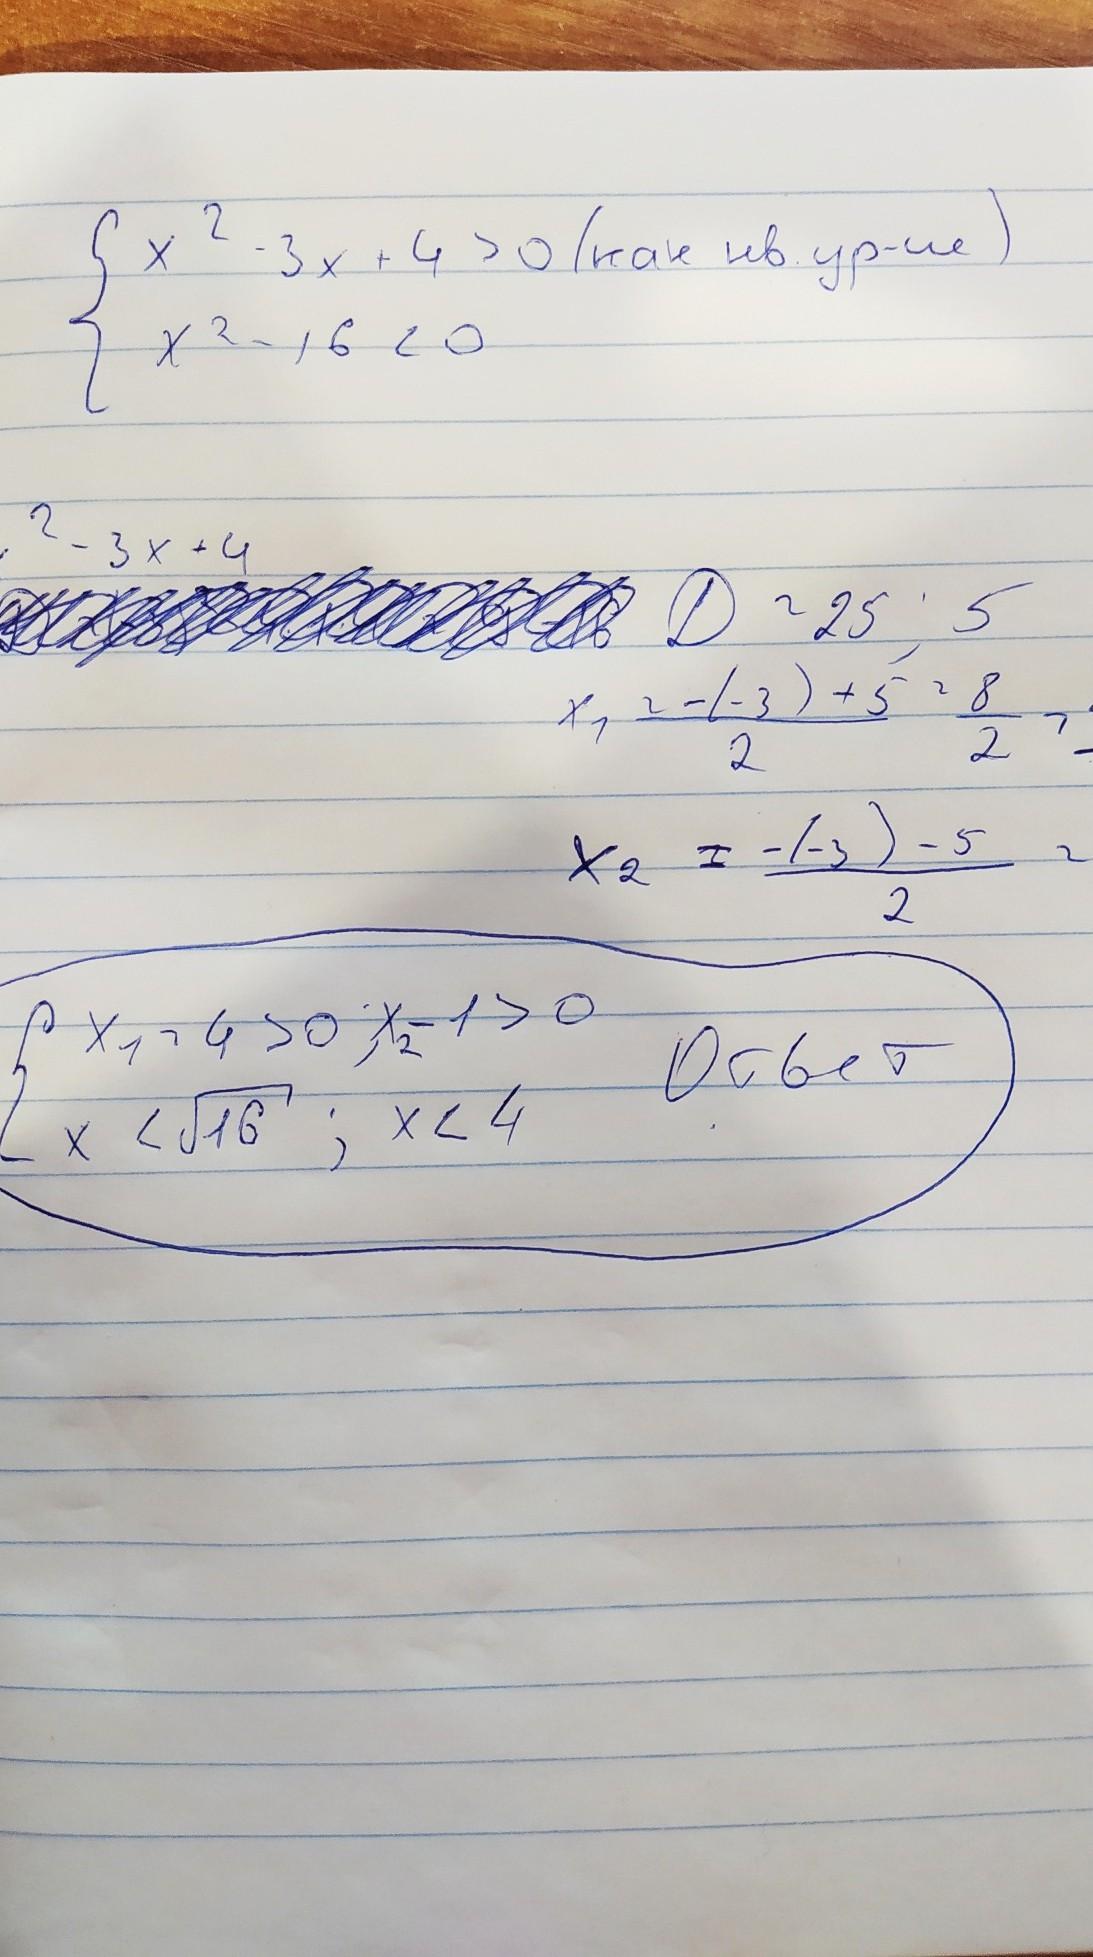 x² - 3x + 4 > 0 (как кв. ур-ие)
x² - 16 < 0
² - 3x + 4
D = 25; 5
x₁ = -(-3) + 5 / 2 = 8 / 2 =
x₂ = -(-3) - 5 / 2 =
x₁ = 4 > 0; x₂ - 1 > 0
Ответ
x < √16; x < 4